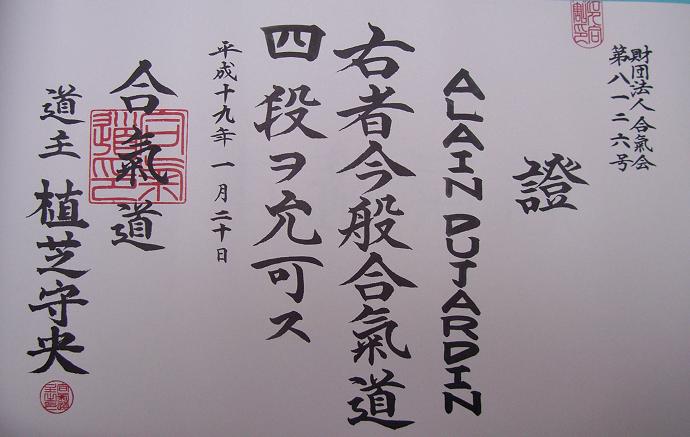 財団法人合氣会
第八一二六号
證
ALAIN DUJARDIN
右者今般合氣道
四段ヲ允可ス
平成十九年一月二十日
合氣道
道主 植芝守央